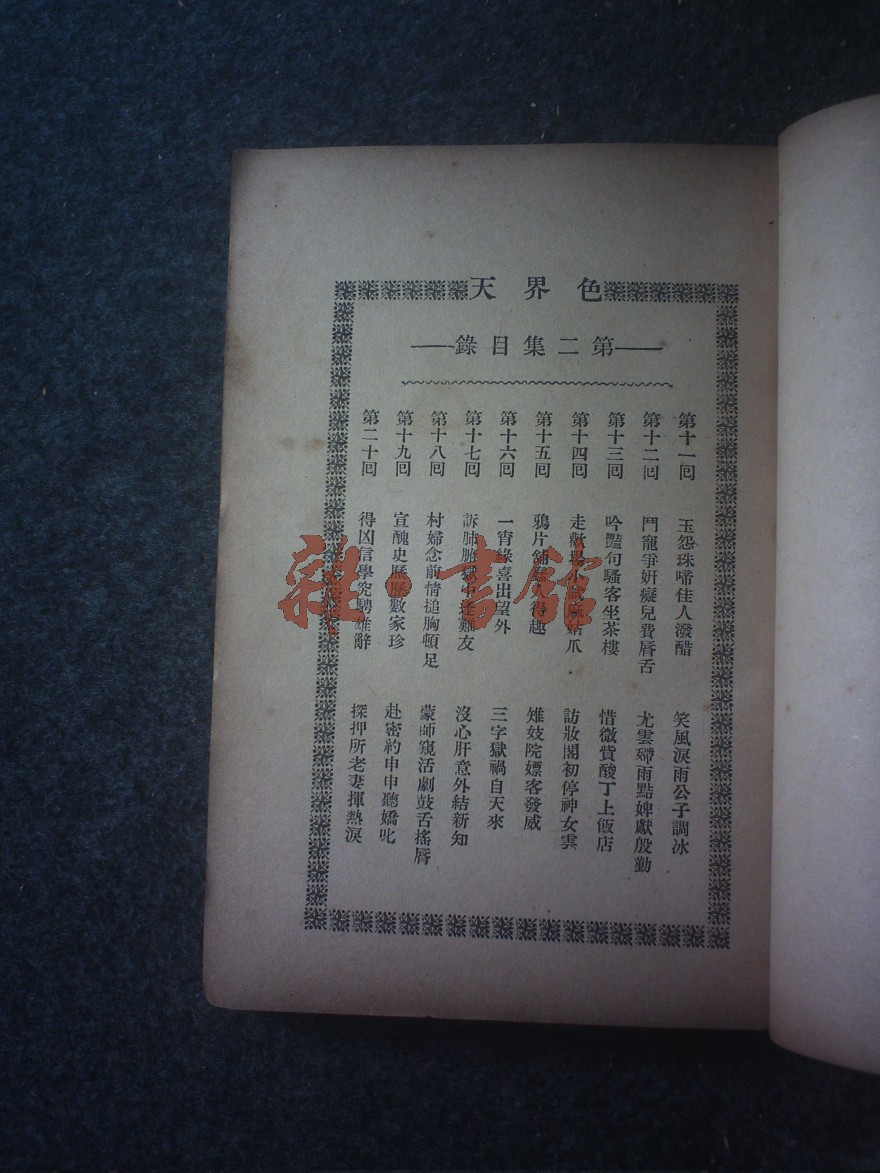 色界天
第二集目錄
第十一囘 玉怨珠啼佳人潑醋 笑風淚雨公子調冰
第十二囘 鬥寵爭妍癡兒費唇舌 尤雲殢雨點婢獻殷勤
第十三囘 吟豔句騷客坐茶樓 惜微貲酸丁上飯店
第十四囘 走歡場小試麻姑爪 訪妝閣初停神女雲
第十五囘 鴉片舖 人得趣 雉妓院嫖客發威
第十六囘 一宵緣喜出望外 三字獄禍自天來
第十七囘 訴肺腑獄中逢難友 沒心肝意外結新知
第十八囘 村婦念前情搥胸頓足 蒙師窺活劇鼓舌搖唇
第十九囘 宣醜史歷歷數家珍 赴密約申申聽嬌叱
第二十囘 得凶信學究騁雄辭 探押所老妻揮熱淚
雜·書館